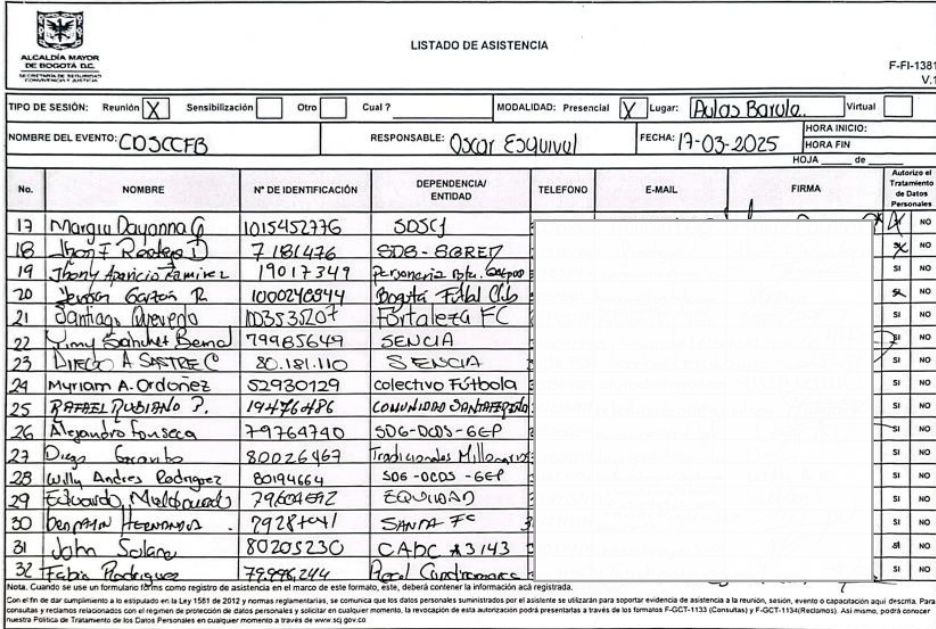 ALCALDÍA MAYOR
DE BOGOTÁ D.C.
SECRETARÍA DE SEGURIDAD
CONVIVENCIA Y JUSTICIA
LISTADO DE ASISTENCIA
F-FI-1381
V.1
TIPO DE SESIÓN: Reunión X Sensibilización Otro Cual ? MODALIDAD: Presencial X Lugar: Aulas Barule. Virtual
NOMBRE DEL EVENTO: CDSCCFB RESPONSABLE: Oscar Esquivel FECHA: 17-03-2025 HORA INICIO:
HORA FIN
HOJA de
No. NOMBRE N° DE IDENTIFICACIÓN DEPENDENCIA/ ENTIDAD TELEFONO E-MAIL FIRMA Autorizo el Tratamiento de Datos Personales
17 Dayanna G 1015452776 SDSCJ NO
18 Jhon F 7181476 NO
19 Jhony Aparicio Ramirez 19017349 Personeria SI NO
20 Garzon R. Bogotá Futbol Club SI NO
21 Santiago 103535207 Fortaleza FC SI NO
22 Yimy Sanchez Bernal 79985649 SENCIA SI NO
23 DIEGO A SASTRE C 80.181.110 SENCIA SI NO
24 Myriam A. Ordoñez 52930129 colectivo Fútbola SI NO
25 RAFAEL RUBIANO P. 19476486 COMUNIDAD SI NO
26 Alejandro Fonseca 79764740 SDG-DCDS-GEP SI NO
27 Diego 80026467 Tradicionales SI NO
28 Willy Andres Rodriguez 80194664 SDG-DCDS-GEP SI NO
29 Eduardo Maldonado EQUIDAD SI NO
30 SANTA FC SI NO
31 John Solano 80205230 CADC SI NO
32 Fabio Rodriguez 79.996.244 SI NO
Nota. Cuando se use un formulario forms como registro de asistencia en el marco de este formato, este, deberá contener la información acá registrada.
Con el fin de dar cumplimiento a lo estipulado en la Ley 1581 de 2012 y normas reglamentarias, se comunica que los datos personales suministrados por el asistente se utilizarán para soportar evidencia de asistencia a la reunión, sesión, evento o capacitación aquí descrita. Para
consultas y reclamos relacionados con el regimen de protección de datos personales y solicitar en cualquier momento, la revocación de esta autorización podrá presentarlas a través de los formatos F-GCT-1133 (Consultas) y F-GCT-1134(Reclamos). Así mismo, podrá conocer
nuestra Politica de Tratamiento de los Datos Personales en cualquier momento a través de www.scj.gov.co